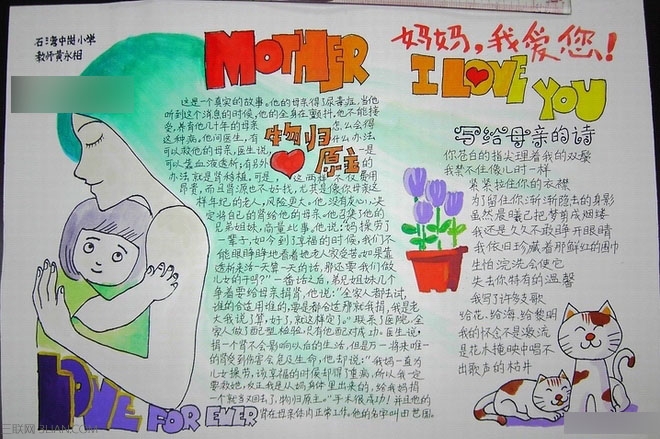 石三湾中街小学
教师黄永相
MOTHER
妈妈，我爱您！
I LOVE YOU
物归原主
这是一个真实的故事。他的母亲得了尿毒症，当他
听到这个消息的时候，他的全身在颤抖，他不能接
受，养育他几十年的母亲怎么会得
这种病，他问医生，有什么办法，
可以救他的母亲，医生说，一是
可以靠血液透析，有另外的
办法，就是肾移植，可是，这两样不仅费用
昂贵，而且肾源也不好找，尤其是像你母亲这
样年纪的老人，风险更大，他没有灰心，决
定将自己的肾给他的母亲，他召集了他的
兄弟姐妹，商量此事，他说：妈操劳了
一辈子，如今到了享福的时候，我们不
能眼睁睁地看着她老人家受苦，如果靠
透析来活一天算一天的话，那还要我们做
儿女的干吗？”一番话之后，弟兄姐妹几个
争着要给母亲捐肾，他说：“全家人都去试，
谁的合适用谁的，要是都合适那就我捐，我是老
大我说了算，好了，就这样定了。”联系了医院，全
家人做了配型检验，只有他配对成功。医生说，
捐一个肾不会影响以后的生活，但是万一将来唯一
的肾受到伤害会危及生命，他却说：“我妈一直为
儿女操劳，该享福的时候却得了重病，所以我一定
要救她，反正我是从妈身体里出来的，给我妈捐
一个就当又回去了，物归原主。”手术很成功！并且他的
肾在母亲体内正常工作，他的名字叫田世国。
写给母亲的诗
你苍白的指尖理着我的双鬓
我禁不住像儿时一样
紧紧拉住你的衣襟
为了留住你渐渐隐去的身影
虽然晨曦已把梦剪成烟缕
我还是久久不敢睁开眼睛
我依旧珍藏着那鲜红的围巾
生怕浣洗会使它
失去你特有的温馨
我写了许多支歌
给花、给海、给黎明
我的怀念不是激流
是花木掩映中唱不
出歌声的枯井
LOVE FOR EVER
三联网 3LIAN.COM